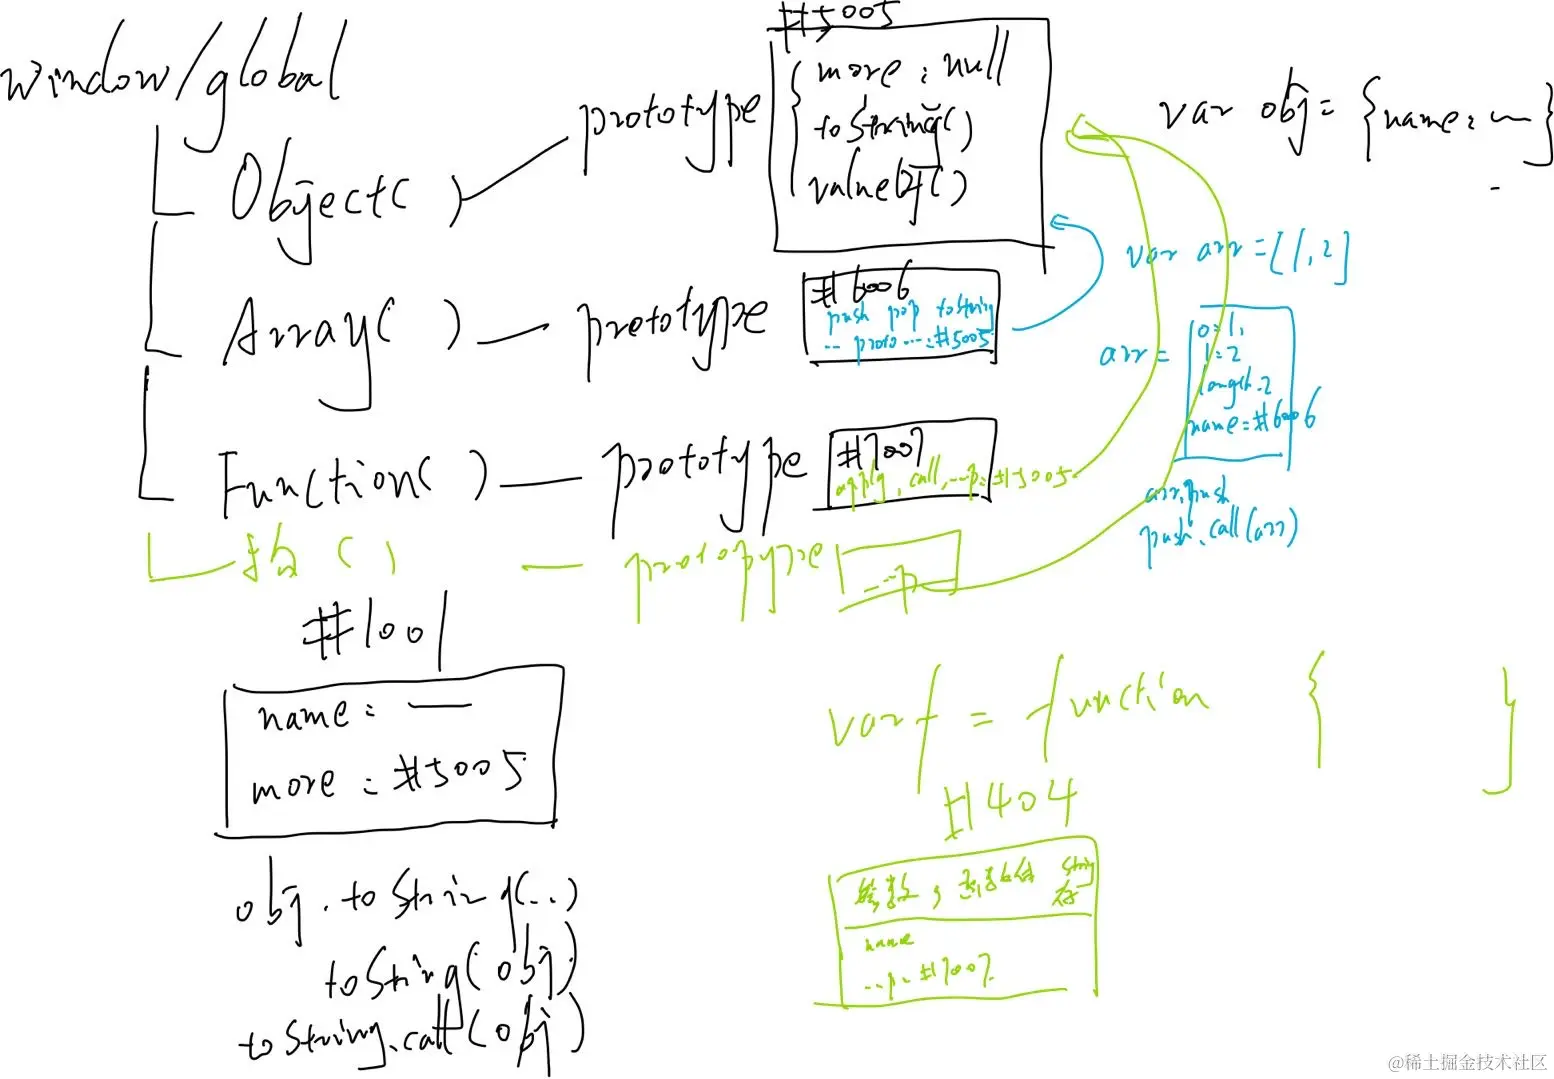 window/global
Object( )
prototype
#5005
more : null
toString( )
valueOf( )
var obj = {name: ~}
Array( )
prototype
#6006
push pop toString
-- proto --- : #5005
var arr = [1, 2]
arr =
0=1,
1=2
length=2
name = #6006
arr.push
push.call(arr)
Function( )
prototype
#7007
apply, call, --p: #5005
( )
protopyxe
---p
#1001
name :
more : #5005
obj. toString(..)
toString(obj)
toString.call(obj)
var f = function { }
#404
参数,
string
name
..p. #7007
@稀土掘金技术社区